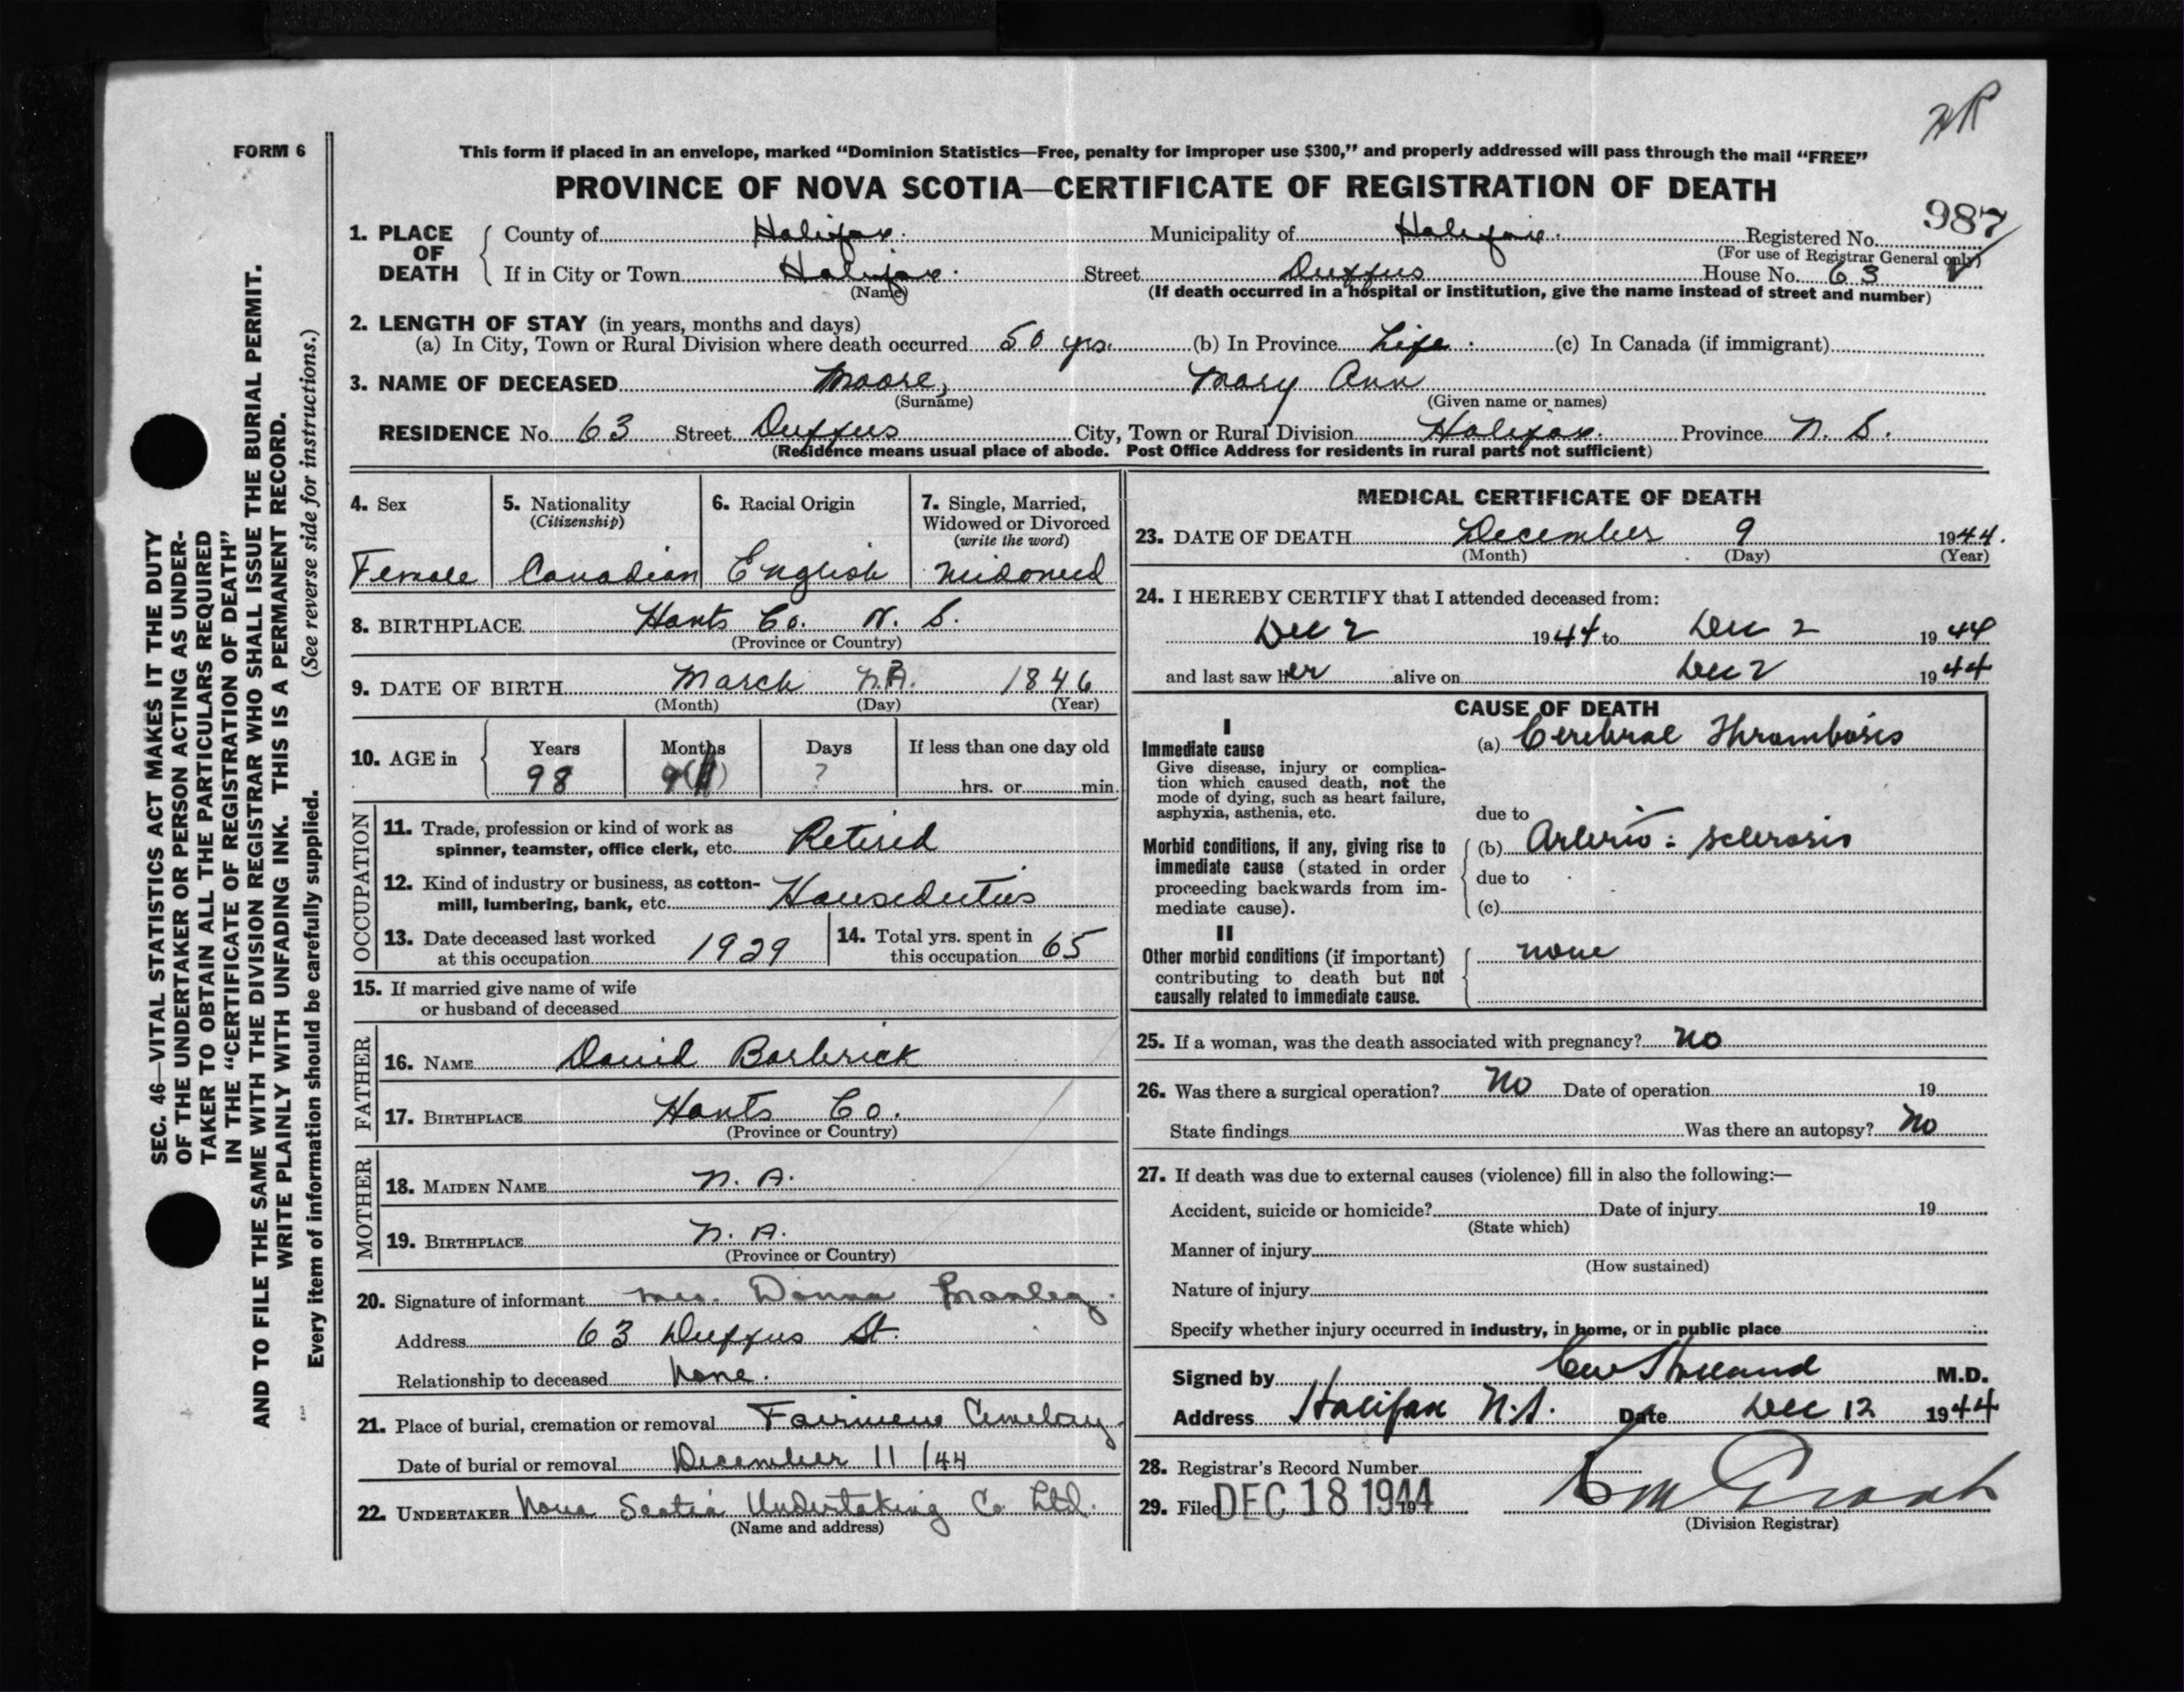 NR
FORM 6
This form if placed in an envelope, marked "Dominion Statistics—Free, penalty for improper use $300," and properly addressed will pass through the mail "FREE"
PROVINCE OF NOVA SCOTIA—CERTIFICATE OF REGISTRATION OF DEATH
987
1. PLACE OF DEATH { County of Halifax. Municipality of Halifax. Registered No.
(For use of Registrar General only)
If in City or Town Halifax. Street Duffus House No. 63
(Name) (If death occurred in a hospital or institution, give the name instead of street and number)
2. LENGTH OF STAY (in years, months and days)
(a) In City, Town or Rural Division where death occurred 50 yrs. (b) In Province Life. (c) In Canada (if immigrant)
3. NAME OF DECEASED Moore, Mary Ann
(Surname) (Given name or names)
RESIDENCE No. 63 Street Duffus City, Town or Rural Division Halifax. Province N. S.
(Residence means usual place of abode. Post Office Address for residents in rural parts not sufficient)
4. Sex 5. Nationality 6. Racial Origin 7. Single, Married,
(Citizenship) Widowed or Divorced
(write the word)
Female Canadian English Widowed
8. BIRTHPLACE Hants Co. N. S.
(Province or Country)
9. DATE OF BIRTH March N.A. 1846
(Month) (Day) (Year)
10. AGE in { Years Months Days If less than one day old
98 9 ? hrs. or min.
OCCUPATION
11. Trade, profession or kind of work as
spinner, teamster, office clerk, etc. Retired
12. Kind of industry or business, as cotton-
mill, lumbering, bank, etc. Houseduties
13. Date deceased last worked
at this occupation 1929
14. Total yrs. spent in
this occupation 65
15. If married give name of wife
or husband of deceased
FATHER
16. NAME David Barbrick
17. BIRTHPLACE Hants Co.
(Province or Country)
MOTHER
18. MAIDEN NAME N. A.
19. BIRTHPLACE N. A.
(Province or Country)
20. Signature of informant Mrs. Donna Manley.
Address 63 Duffus St.
Relationship to deceased None.
21. Place of burial, cremation or removal Fairview Cemetery.
Date of burial or removal December 11/44
22. UNDERTAKER Nova Scotia Undertaking Co. Ltd.
(Name and address)
MEDICAL CERTIFICATE OF DEATH
23. DATE OF DEATH December 9 1944.
(Month) (Day) (Year)
24. I HEREBY CERTIFY that I attended deceased from:
Dec 2 1944 to Dec 2 1944
and last saw her alive on Dec 2 1944
CAUSE OF DEATH
I
Immediate cause (a) Cerebral Thrombosis
Give disease, injury or complica-
tion which caused death, not the
mode of dying, such as heart failure,
asphyxia, asthenia, etc. due to
Morbid conditions, if any, giving rise to (b) Arterio-sclerosis
immediate cause (stated in order
proceeding backwards from im- due to
mediate cause). (c)
II
Other morbid conditions (if important) none
contributing to death but not
causally related to immediate cause.
25. If a woman, was the death associated with pregnancy? No
26. Was there a surgical operation? No Date of operation 19
State findings Was there an autopsy? No
27. If death was due to external causes (violence) fill in also the following:—
Accident, suicide or homicide? Date of injury 19
(State which)
Manner of injury
(How sustained)
Nature of injury
Specify whether injury occurred in industry, in home, or in public place
Signed by M.D.
Address Halifax N.S. Date Dec 12 1944
28. Registrar's Record Number
29. Filed DEC 18 1944 19
(Division Registrar)
SEC. 46—VITAL STATISTICS ACT MAKES IT THE DUTY
OF THE UNDERTAKER OR PERSON ACTING AS UNDER-
TAKER TO OBTAIN ALL THE PARTICULARS REQUIRED
IN THE "CERTIFICATE OF REGISTRATION OF DEATH"
AND TO FILE THE SAME WITH THE DIVISION REGISTRAR WHO SHALL ISSUE THE BURIAL PERMIT.
WRITE PLAINLY WITH UNFADING INK. THIS IS A PERMANENT RECORD.
Every item of information should be carefully supplied. (See reverse side for instructions.)